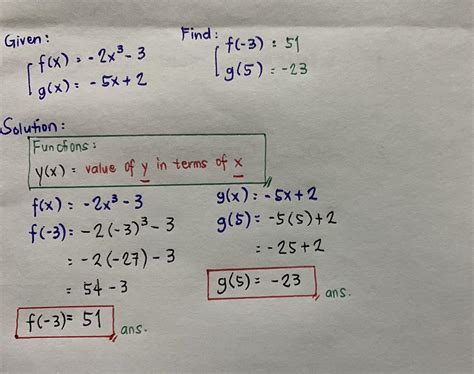 Given:
f(x) = -2x³ - 3
g(x) = - 5x + 2
Find:
f(-3) = 51
g(5) = -23
Solution:
Functions:
y(x) = value of y in terms of x
f(x) = -2x³ - 3
f(-3) = -2(-3)³ - 3
= -2(-27) - 3
= 54 - 3
f(-3) = 51 ans.
g(x) = -5x + 2
g(5) = -5(5) + 2
= -25 + 2
g(5) = -23 ans.